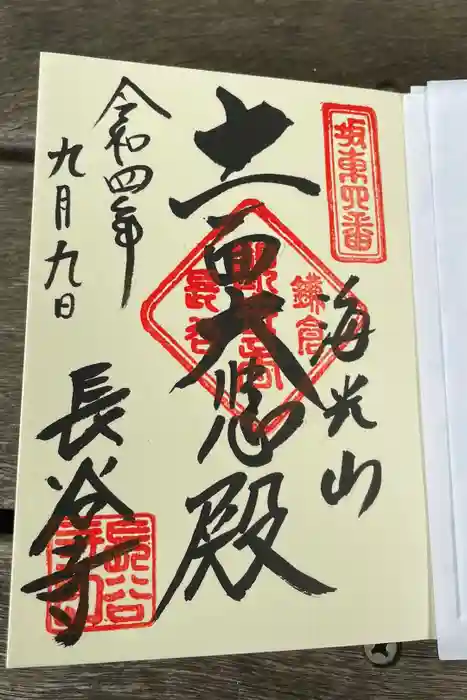 坂東四番
海光山
鎌倉
十一面大悲殿
長谷
令和四年
九月九日
長谷寺